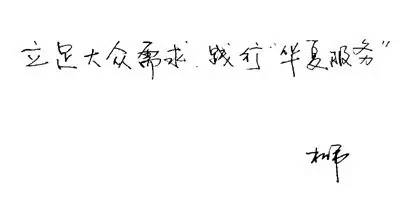 立足大众需求，践行“华夏服务”